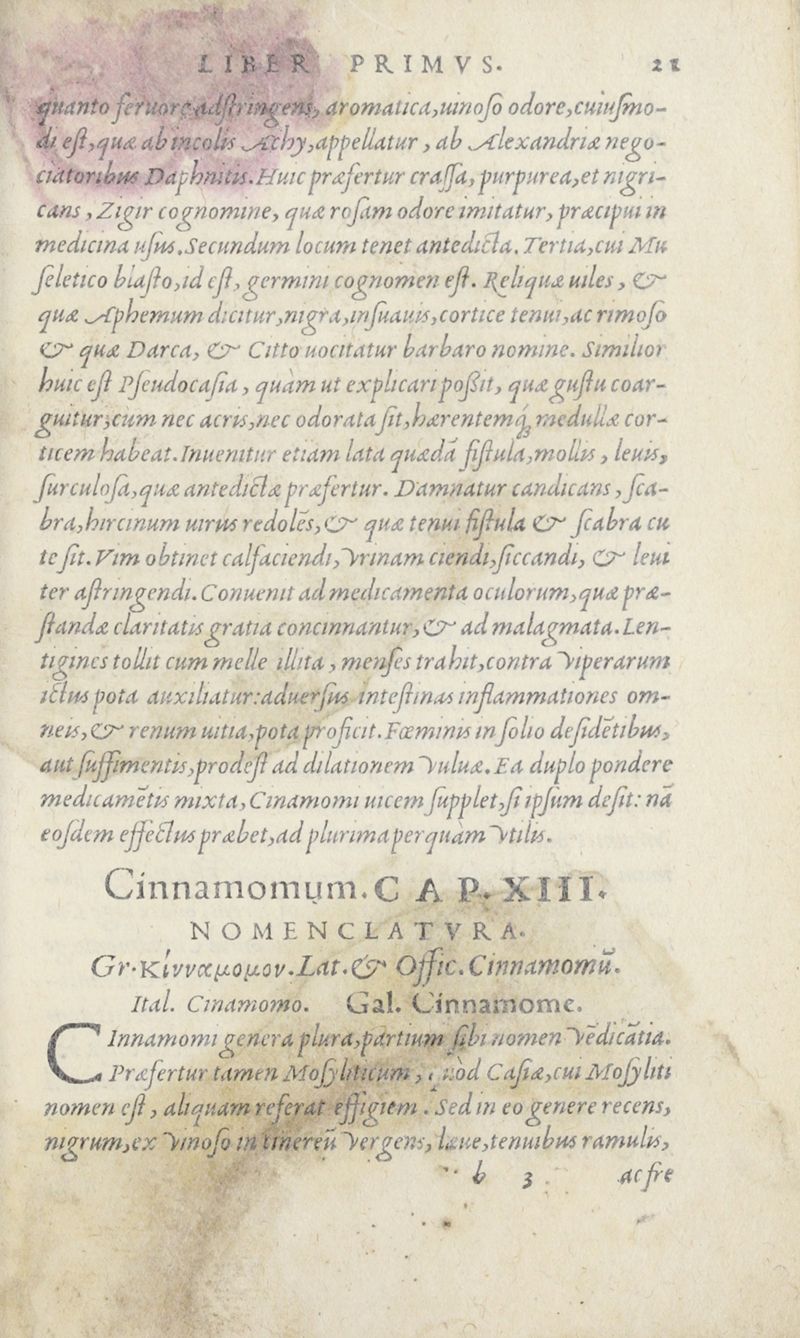 LIBER PRIMVS. 21
quanto feruore adſtringens, aromatica,uinoſo odore,cuiuſmo-
di eſt,quæ ab incolis Achy,appellatur, ab Alexandriæ nego-
ciatoribus Daphnitis.Huic præfertur craſſa, purpurea,et nigri-
cans, Zigir cognomine, quæ roſam odore imitatur, præcipui in
medicina uſus.Secundum locum tenet antedicta. Tertia,cui Mu
ſeletico blaſto,id eſt, germini cognomen eſt. Reliquæ uiles, &
quæ Aphemum dicitur,nigra,inſuauis,cortice tenui,ac rimoſo
& quæ Darca, & Citto uocitatur barbaro nomine. Similior
huic eſt Pſeudocaſia, quàm ut explicari poßit, quæ guſtu coar-
guitur;cum nec acris,nec odorata ſit,hærentemq́; medullæ cor-
ticem habeat.Inuenitur etiam lata quædã fiſtula,mollis, leuis,
ſurculoſa,quæ antedictæ præfertur. Damnatur candicans, ſca-
bra,hircinum uirus redolẽs,& quæ tenui fiſtula & ſcabra cu
te ſit.Vim obtinet calfaciendi,vrinam ciendi,ſiccandi, & leui
ter aſtringendi.Conuenit ad medicamenta oculorum,quæ præ-
ſtandæ claritatis gratia concinnantur,& ad malagmata.Len-
tigines tollit cum melle illita, menſes trahit,contra viperarum
ictus pota auxiliatur:aduerſus inteſtinas inflammationes om-
neis,& renum uitia,pota proficit.Fœminis in ſolio deſidẽtibus,
aut ſuffimentis,prodeſt ad dilationem vuluæ.Ea duplo pondere
medicamẽtis mixta,Cinamomi uicem ſupplet,ſi ipſum deſit: nã
eoſdem effectus præbet,ad plurima perquàm vtilis.
Cinnamomum.CAP.XIII.
NOMENCLATVRA.
Gr.κίνναμομον.Lat.& Offic.Cinnamomũ.
Ital. Cinamomo. Gal. Cinnamome.
CInnamomi genera plura,partium ſibi nomen vẽdicãtia.
Præfertur tamen Moſyliticum, quod Caſiæ,cui Moſyliti
nomen eſt, aliquam referat effigiem. Sed in eo genere recens,
nigrum,ex vinoſo in cinereũ vergens,læue,tenuibus ramulis,
b 3 ac fre